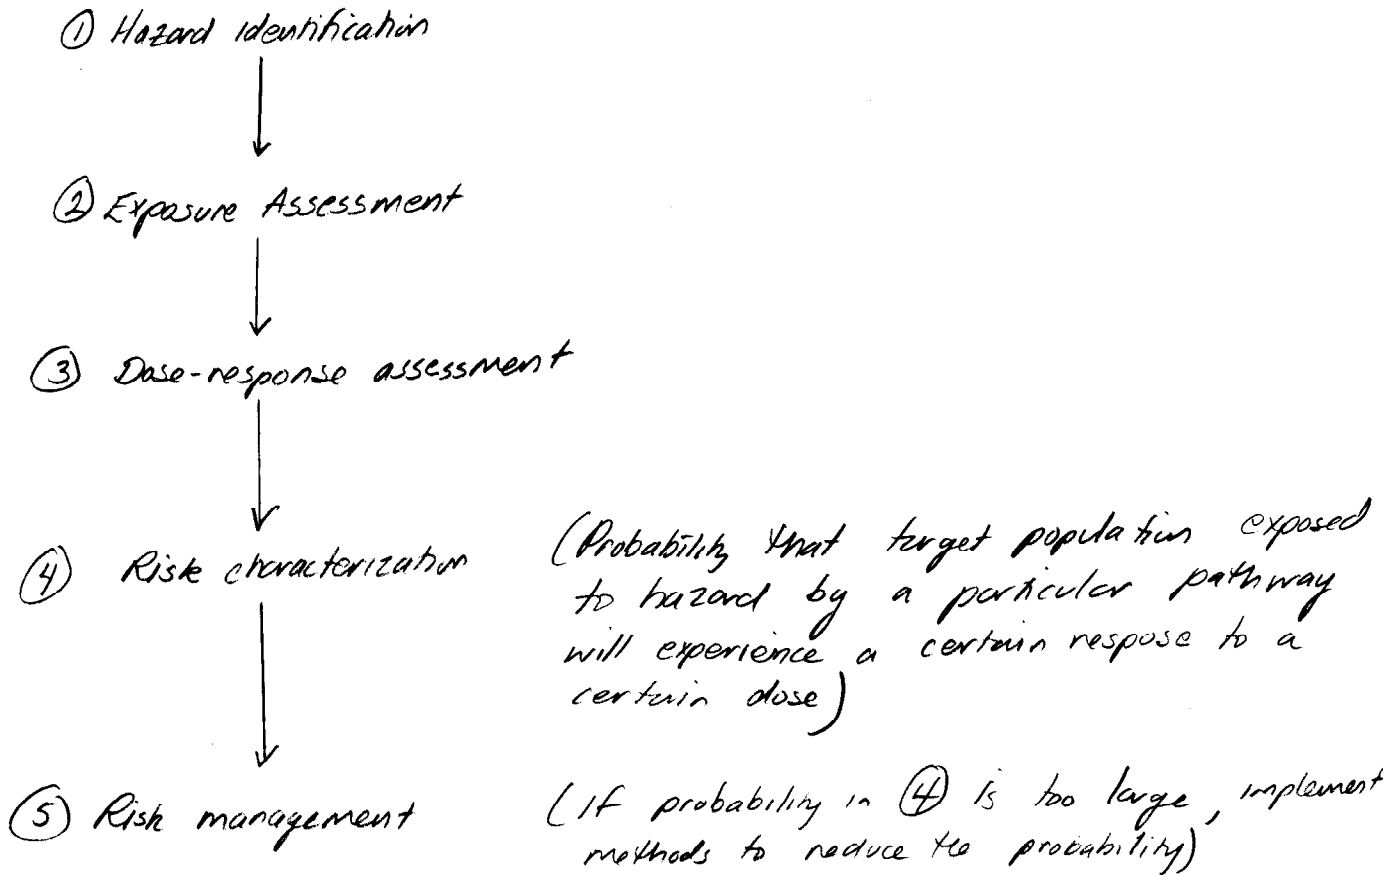 ① Hazard identification
② Exposure Assessment
③ Dose-response assessment
④ Risk characterization (Probability that target population exposed
to hazard by a particular pathway
will experience a certain respose to a
certain dose)
⑤ Risk management (If probability in ④ is too large, implement
methods to reduce the probability)